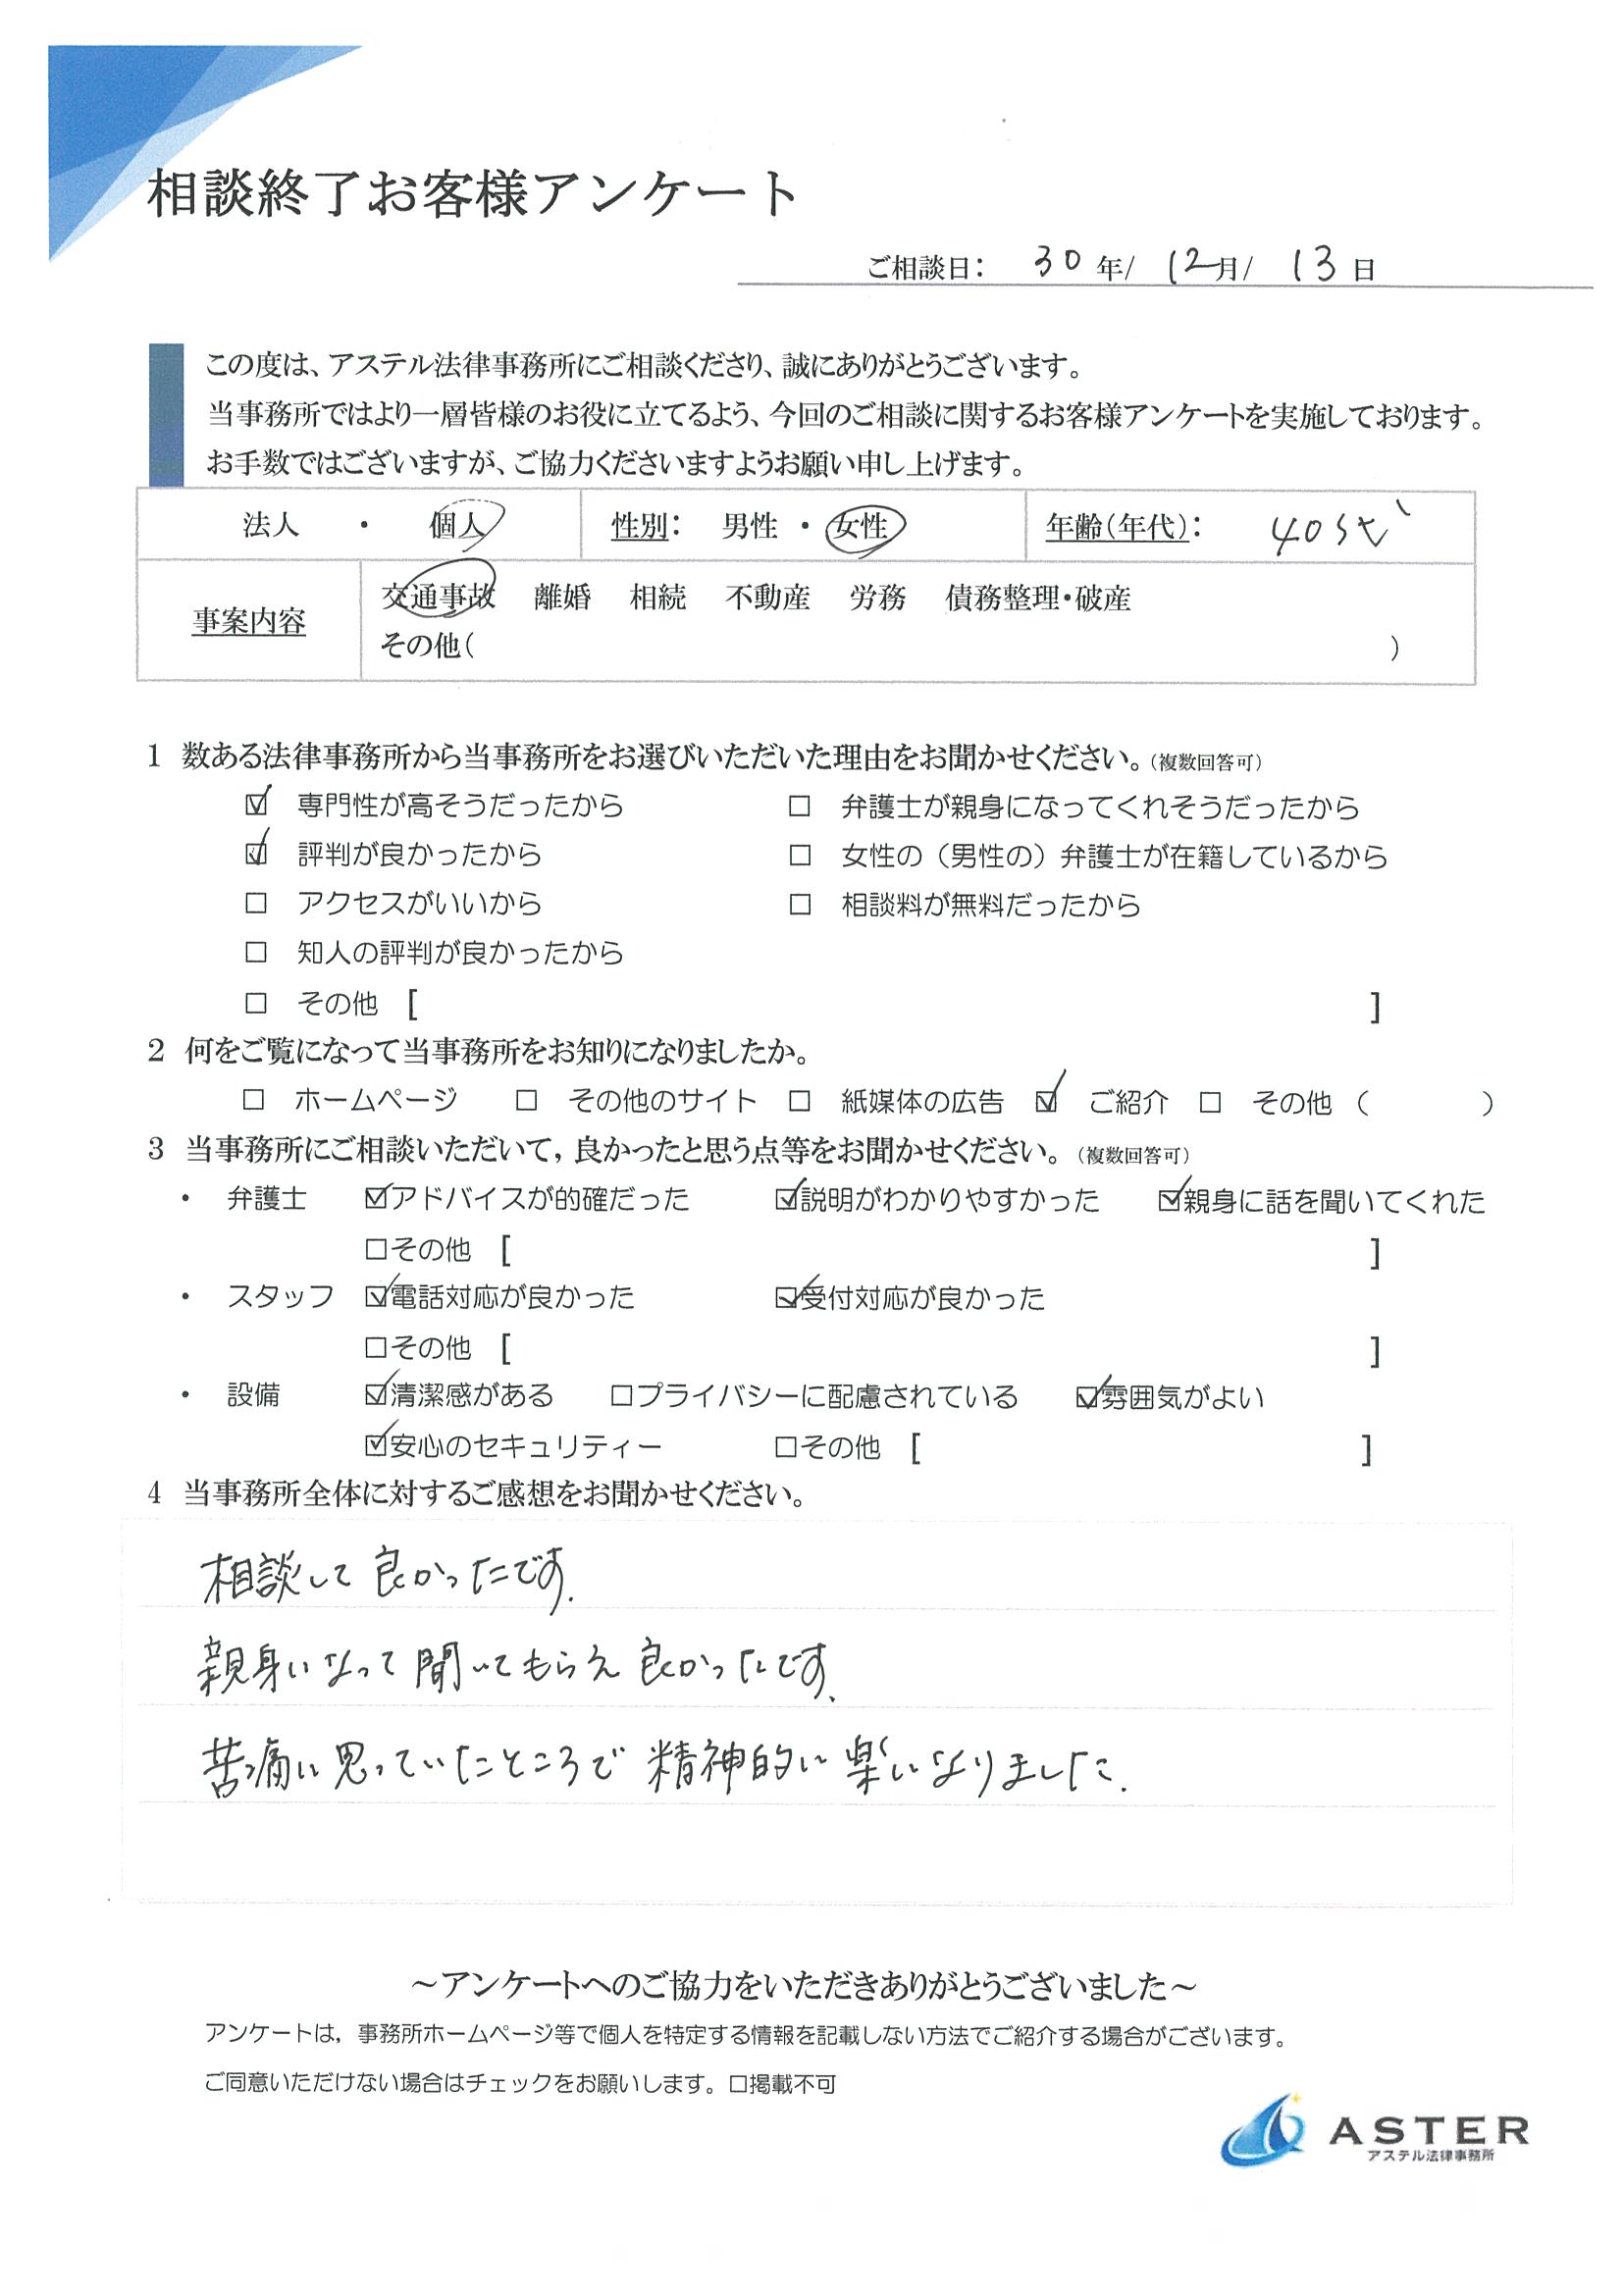 相談終了お客様アンケート
ご相談日: 30年/ 12月/ 13日
この度は、アステル法律事務所にご相談くださり、誠にありがとうございます。
当事務所ではより一層皆様のお役に立てるよう、今回のご相談に関するお客様アンケートを実施しております。
お手数ではございますが、ご協力くださいますようお願い申し上げます。
法人 ・ 個人 性別: 男性 ・ 女性 年齢(年代): 40才代
事案内容 交通事故 離婚 相続 不動産 労務 債務整理・破産
その他( )
1 数ある法律事務所から当事務所をお選びいただいた理由をお聞かせください。(複数回答可)
☑ 専門性が高そうだったから □ 弁護士が親身になってくれそうだったから
☑ 評判が良かったから □ 女性の(男性の)弁護士が在籍しているから
□ アクセスがいいから □ 相談料が無料だったから
□ 知人の評判が良かったから
□ その他 [ ]
2 何をご覧になって当事務所をお知りになりましたか。
□ ホームページ □ その他のサイト □ 紙媒体の広告 ☑ ご紹介 □ その他 ( )
3 当事務所にご相談いただいて,良かったと思う点等をお聞かせください。(複数回答可)
・ 弁護士 ☑アドバイスが的確だった ☑説明がわかりやすかった ☑親身に話を聞いてくれた
□その他 [ ]
・ スタッフ ☑電話対応が良かった ☑受付対応が良かった
□その他 [ ]
・ 設備 ☑清潔感がある □プライバシーに配慮されている ☑雰囲気がよい
☑安心のセキュリティー □その他 [ ]
4 当事務所全体に対するご感想をお聞かせください。
相談して良かったです.
親身になって聞いてもらえ良かったです、
苦痛に思っていたところで精神的に楽になりました.
～アンケートへのご協力をいただきありがとうございました～
アンケートは,事務所ホームページ等で個人を特定する情報を記載しない方法でご紹介する場合がございます。
ご同意いただけない場合はチェックをお願いします。□掲載不可
ASTER
アステル法律事務所